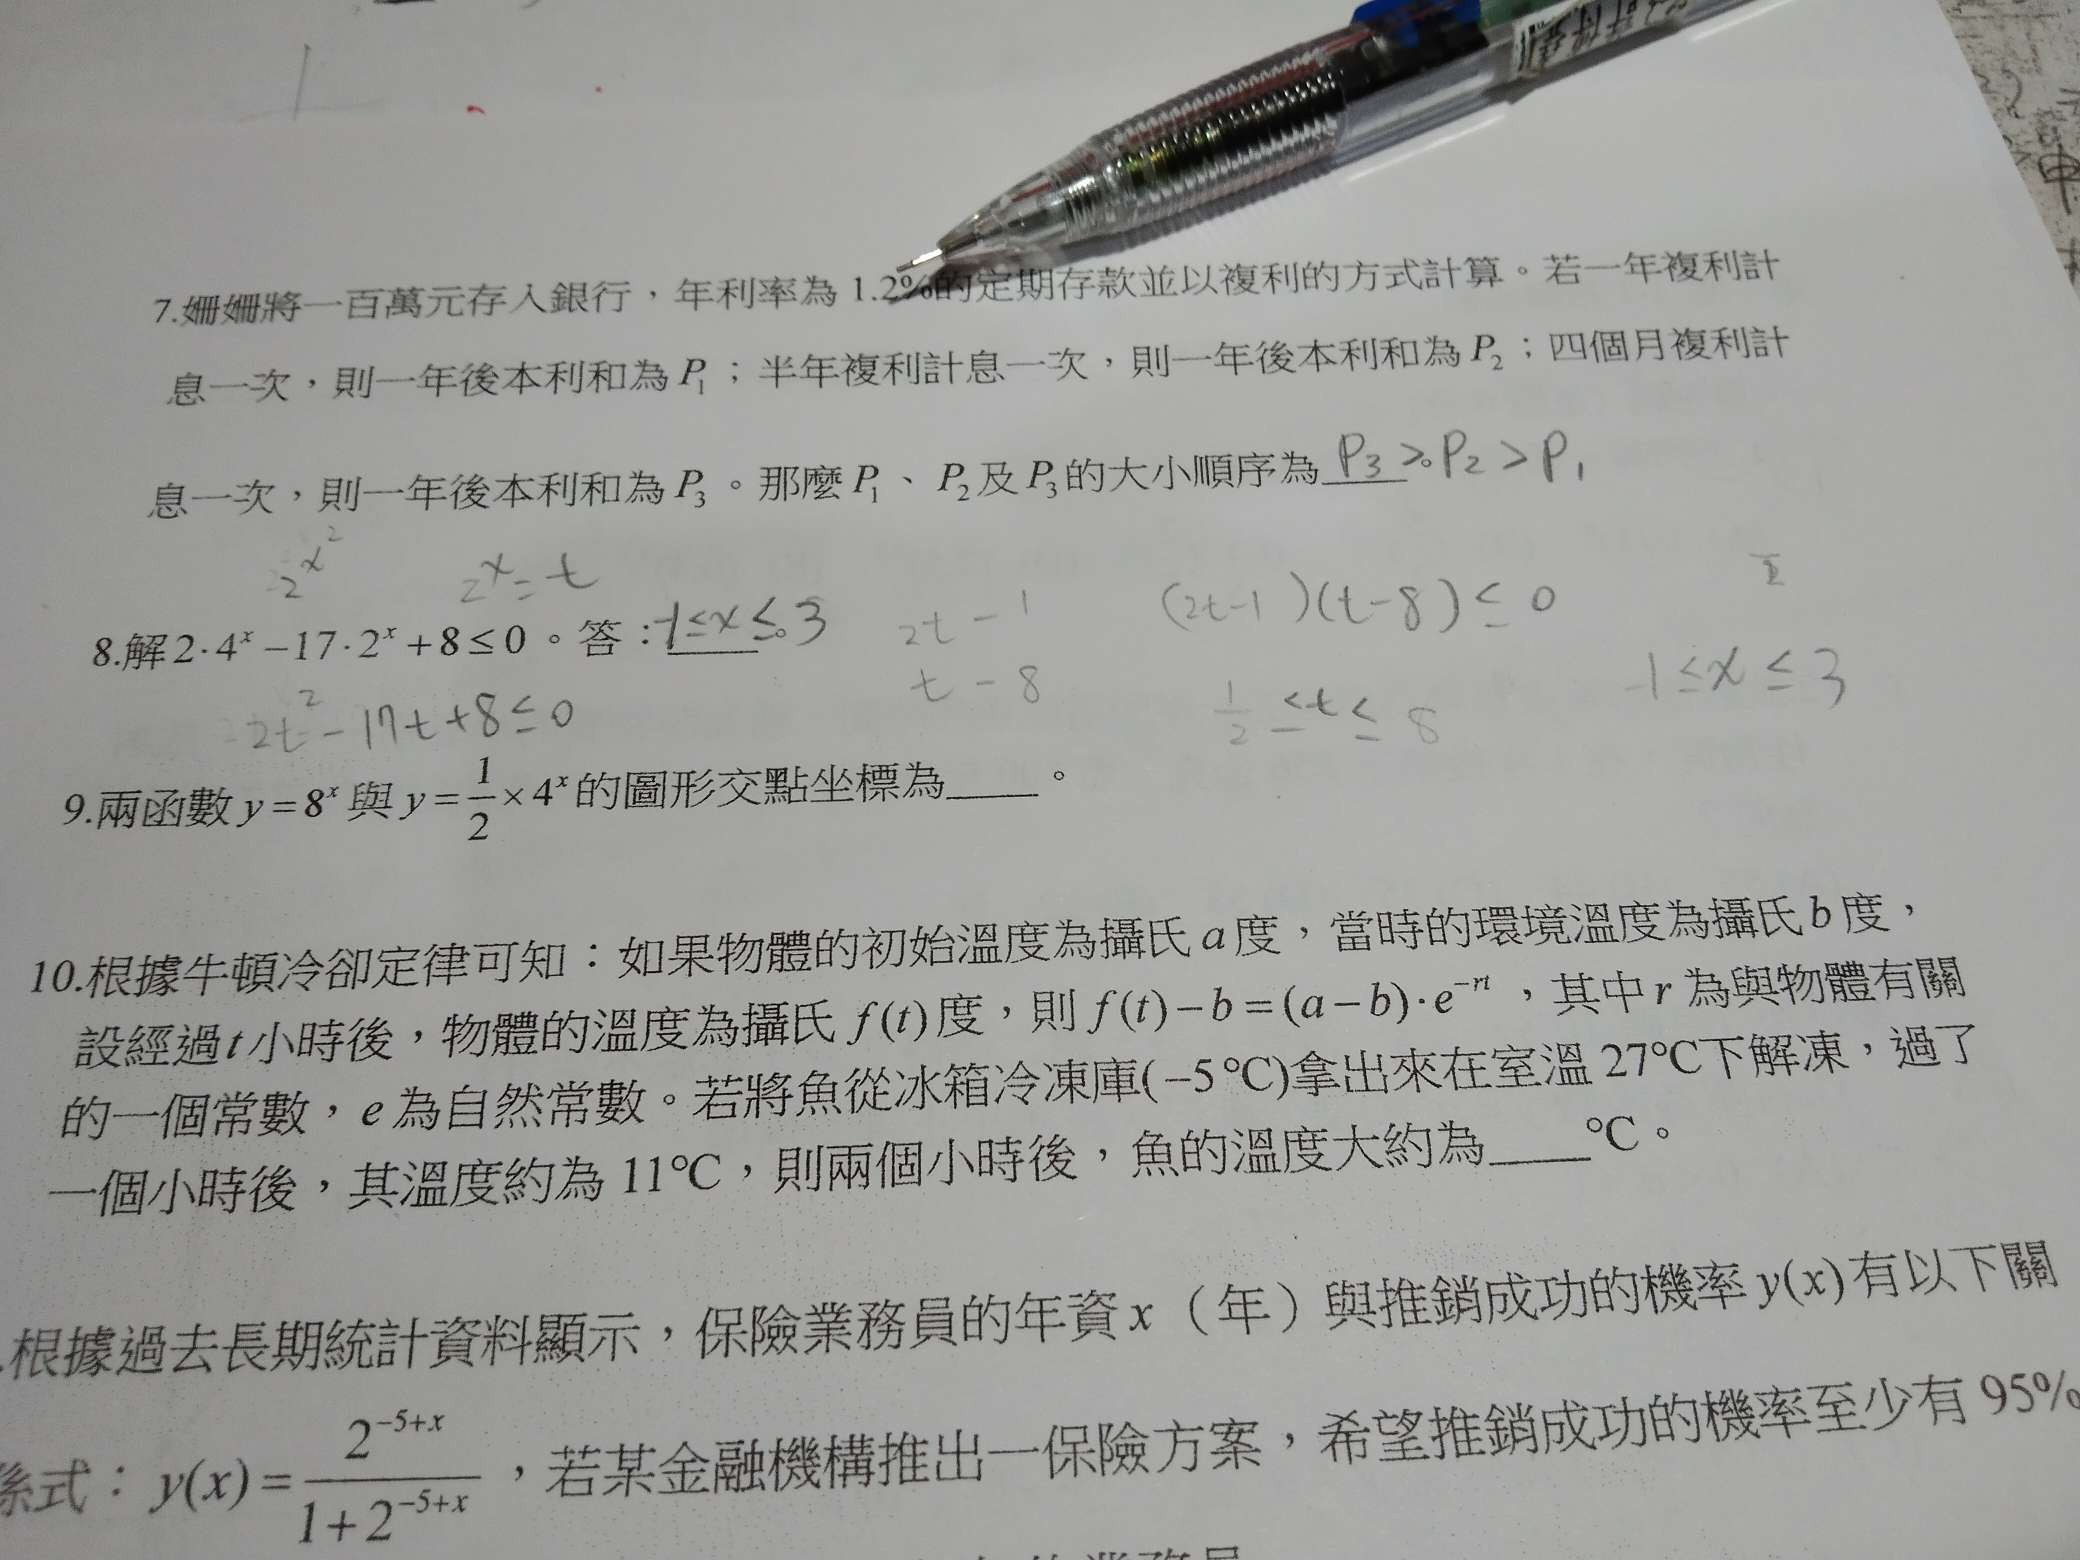 7.姍姍將一百萬元存入銀行，年利率為 1.2%的定期存款並以複利的方式計算。若一年複利計
息一次，則一年後本利和為 P₁；半年複利計息一次，則一年後本利和為 P₂；四個月複利計
息一次，則一年後本利和為 P₃。那麼 P₁、P₂及 P₃的大小順序為 P₃ > P₂ > P₁。
2^x² 2^x = t
8.解 2·4^x −17·2^x +8≤0。答：-1≤x≤3。
2t − 1
t − 8
(2t-1)(t-8) ≤ 0
2t² − 17t + 8 ≤ 0
1/2 ≤ t ≤ 8
-1 ≤ x ≤ 3
9.兩函數 y = 8^x 與 y = 1/2 × 4^x 的圖形交點坐標為____。
10.根據牛頓冷卻定律可知：如果物體的初始溫度為攝氏 a 度，當時的環境溫度為攝氏 b 度，
設經過 t 小時後，物體的溫度為攝氏 f(t) 度，則 f(t) − b = (a − b)·e^−rt，其中 r 為與物體有關
的一個常數，e 為自然常數。若將魚從冰箱冷凍庫(−5℃)拿出來在室溫 27℃下解凍，過了
一個小時後，其溫度約為 11℃，則兩個小時後，魚的溫度大約為____℃。
.根據過去長期統計資料顯示，保險業務員的年資 x（年）與推銷成功的機率 y(x) 有以下關
係式：y(x) = 2^−5+x / 1+2^−5+x，若某金融機構推出一保險方案，希望推銷成功的機率至少有 95%